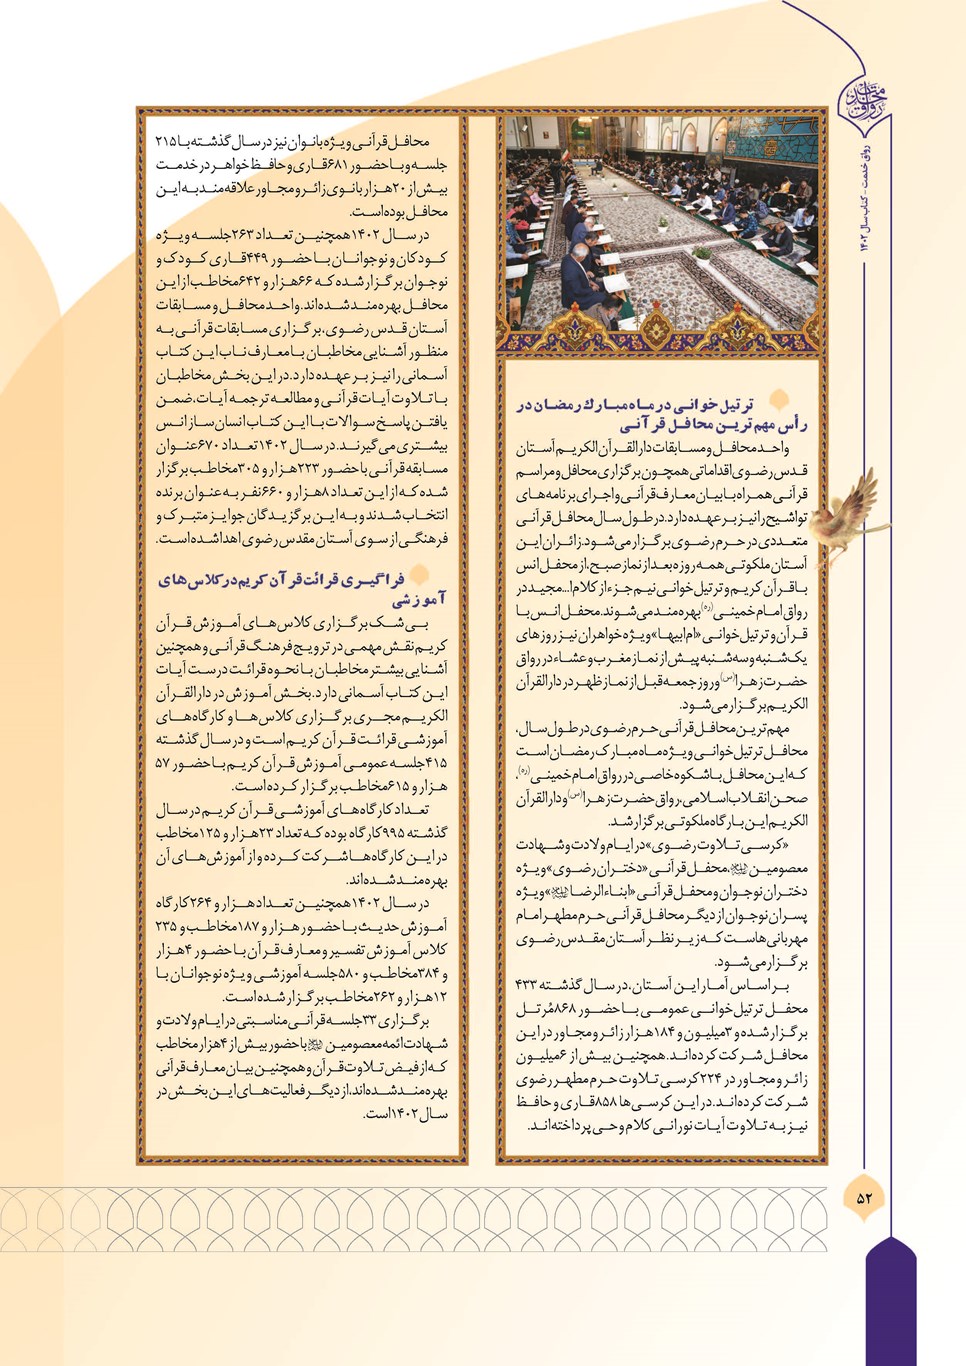 رواق خدمت - کتاب سال ۱۴۰۲
ترتیل خوانی در ماه مبارک رمضان در
رأس مهم ترین محافل قرآنی
واحد محافل و مسابقات دارالقرآن الکریم آستان
قدس رضوی اقداماتی همچون برگزاری محافل و مراسم
قرآنی همراه با بیان معارف قرآنی و اجرای برنامه های
تواشیح را نیز بر عهده دارد. در طول سال محافل قرآنی
متعددی در حرم رضوی برگزار می شود. زائران این
آستان ملکوتی همه روزه بعد از نماز صبح، از محفل انس
با قرآن کریم و ترتیل خوانی نیم جزء از کلام ا... مجید در
رواق امام خمینی(ره) بهره مند می شوند. محفل انس با
قرآن و ترتیل خوانی «ام ابیها» ویژه خواهران نیز روزهای
یک شنبه و سه شنبه پیش از نماز مغرب و عشاء در رواق
حضرت زهرا(س) و روز جمعه قبل از نماز ظهر در دارالقرآن
الکریم برگزار می شود.
مهم ترین محافل قرآنی حرم رضوی در طول سال،
محافل ترتیل خوانی ویژه ماه مبارک رمضان است
که این محافل با شکوه خاصی در رواق امام خمینی(ره)،
صحن انقلاب اسلامی، رواق حضرت زهرا(س) و دارالقرآن
الکریم این بارگاه ملکوتی برگزار شد.
«کرسی تلاوت رضوی» در ایام ولادت و شهادت
معصومین، محفل قرآنی «دختران رضوی» ویژه
دختران نوجوان و محفل قرآنی «ابناءالرضا» ویژه
پسران نوجوان از دیگر محافل قرآنی حرم مطهر امام
مهربانی هاست که زیر نظر آستان مقدس رضوی
برگزار می شود.
بر اساس آمار این آستان، در سال گذشته ۴۳۳
محفل ترتیل خوانی عمومی با حضور ۸۶۸ مُرتل
برگزار شده و ۳ میلیون و ۱۸۴ هزار زائر و مجاور در این
محافل شرکت کرده اند. همچنین بیش از ۶ میلیون
زائر و مجاور در ۲۲۴ کرسی تلاوت حرم مطهر رضوی
شرکت کرده اند. در این کرسی ها ۸۵۸ قاری و حافظ
نیز به تلاوت آیات نورانی کلام وحی پرداخته اند.
محافل قرآنی ویژه بانوان نیز در سال گذشته با ۲۱۵
جلسه و با حضور ۶۸۱ قاری و حافظ خواهر در خدمت
بیش از ۲۰ هزار بانوی زائر و مجاور علاقه مند به این
محافل بوده است.
در سال ۱۴۰۲ همچنین تعداد ۲۶۳ جلسه ویژه
کودکان و نوجوانان با حضور ۴۴۹ قاری کودک و
نوجوان برگزار شده که ۶۶ هزار و ۶۴۲ مخاطب از این
محافل بهره مند شده اند. واحد محافل و مسابقات
آستان قدس رضوی، برگزاری مسابقات قرآنی به
منظور آشنایی مخاطبان با معارف ناب این کتاب
آسمانی را نیز بر عهده دارد. در این بخش مخاطبان
با تلاوت آیات قرآنی و مطالعه ترجمه آیات، ضمن
یافتن پاسخ سوالات با این کتاب انسان ساز انس
بیشتری می گیرند. در سال ۱۴۰۲ تعداد ۶۷۰ عنوان
مسابقه قرآنی با حضور ۲۲۳ هزار و ۳۰۵ مخاطب برگزار
شده که از این تعداد ۸ هزار و ۶۶۰ نفر به عنوان برنده
انتخاب شدند و به این برگزیدگان جوایز متبرک و
فرهنگی از سوی آستان مقدس رضوی اهدا شده است.
فراگیری قرائت قرآن کریم در کلاس های
آموزشی
بی شک برگزاری کلاس های آموزش قرآن
کریم نقش مهمی در ترویج فرهنگ قرآنی و همچنین
آشنایی بیشتر مخاطبان با نحوه قرائت درست آیات
این کتاب آسمانی دارد. بخش آموزش در دارالقرآن
الکریم مجری برگزاری کلاس ها و کارگاه های
آموزشی قرائت قرآن کریم است و در سال گذشته
۴۱۵ جلسه عمومی آموزش قرآن کریم با حضور ۵۷
هزار و ۶۱۵ مخاطب برگزار کرده است.
تعداد کارگاه های آموزشی قرآن کریم در سال
گذشته ۹۹۵ کارگاه بوده که تعداد ۲۳ هزار و ۱۲۵ مخاطب
در این کارگاه ها شرکت کرده و از آموزش های آن
بهره مند شده اند.
در سال ۱۴۰۲ همچنین تعداد هزار و ۲۶۴ کارگاه
آموزش حدیث با حضور هزار و ۱۸۷ مخاطب و ۲۳۵
کلاس آموزش تفسیر و معارف قرآن با حضور ۴ هزار
و ۳۸۴ مخاطب و ۵۸۰ جلسه آموزشی ویژه نوجوانان با
۱۲ هزار و ۲۶۲ مخاطب برگزار شده است.
برگزاری ۳۳ جلسه قرآنی مناسبتی در ایام ولادت و
شهادت ائمه معصومین با حضور بیش از ۴ هزار مخاطب
که از فیض تلاوت قرآن و همچنین بیان معارف قرآنی
بهره مند شده اند، از دیگر فعالیت های این بخش در
سال ۱۴۰۲ است.
۵۲